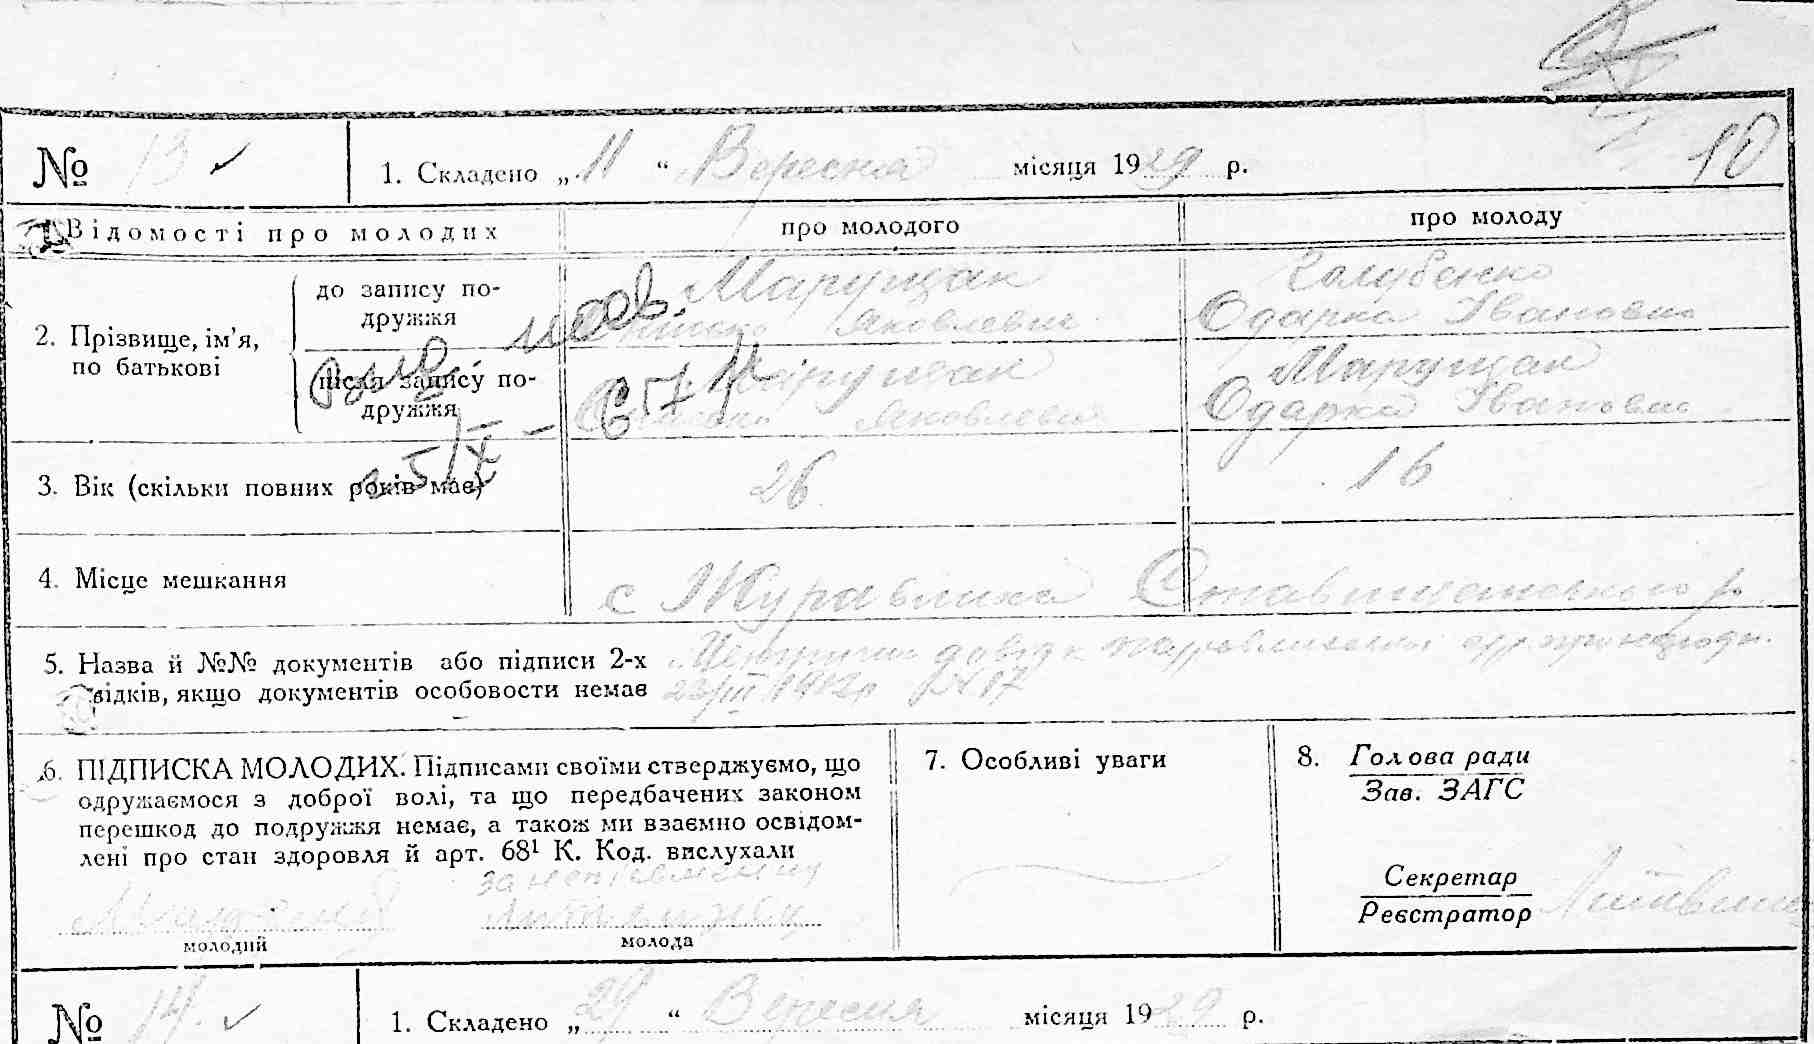 10
№ 13 ✓ 1. Складено „ 11 “ Вересня місяця 1929 р.
Відомості про молодих про молодого про молоду
2. Прізвище, ім’я, по батькові
до запису подружжя
Марущак
Яковлевич
Голубенко
Одарка Івановна
після запису подружжя
Марущак
Яковлевич
Марущак
Одарка Івановна
3. Вік (скільки повних років має) 26 16
4. Місце мешкання с Журавлиха Ставищанського р.
5. Назва й №№ документів або підписи 2-х
свідків, якщо документів особовости немає № 17
6. ПІДПИСКА МОЛОДИХ. Підписами своїми стверджуємо, що
одружаємося з доброї волі, та що передбачених законом
перешкод до подружжя немає, а також ми взаємно освідом-
лені про стан здоровля й арт. 68¹ К. Код. вислухали
молодий молода
7. Особливі уваги
8. Голова ради
Зав. ЗАГС
Секретар
Реєстратор
№ 14 ✓ 1. Складено „ 29 “ Вересня місяця 1929 р.